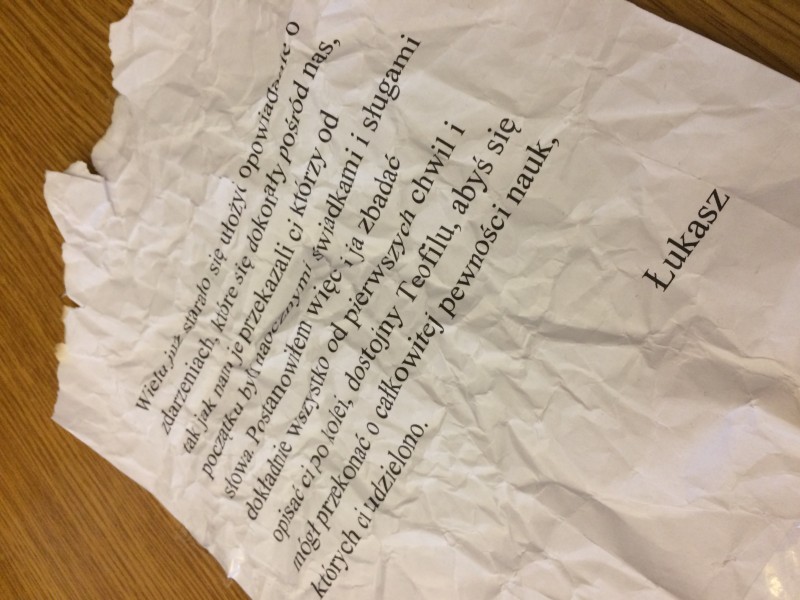 Wielu już starało się ułożyć opowiadanie o
zdarzeniach, które się dokorały pośród nas,
tak jak nam je przekazali ci którzy od
początku byli naocznymi świadkami i sługami
słowa. Postanowiłem więc i ja zbadać
dokładnie wszystko od pierwszych chwil i
opisać ci po kolei, dostojny Teofilu, abyś się
mógł przekonać o całkowitej pewności nauk,
których ci udzielono.
Łukasz